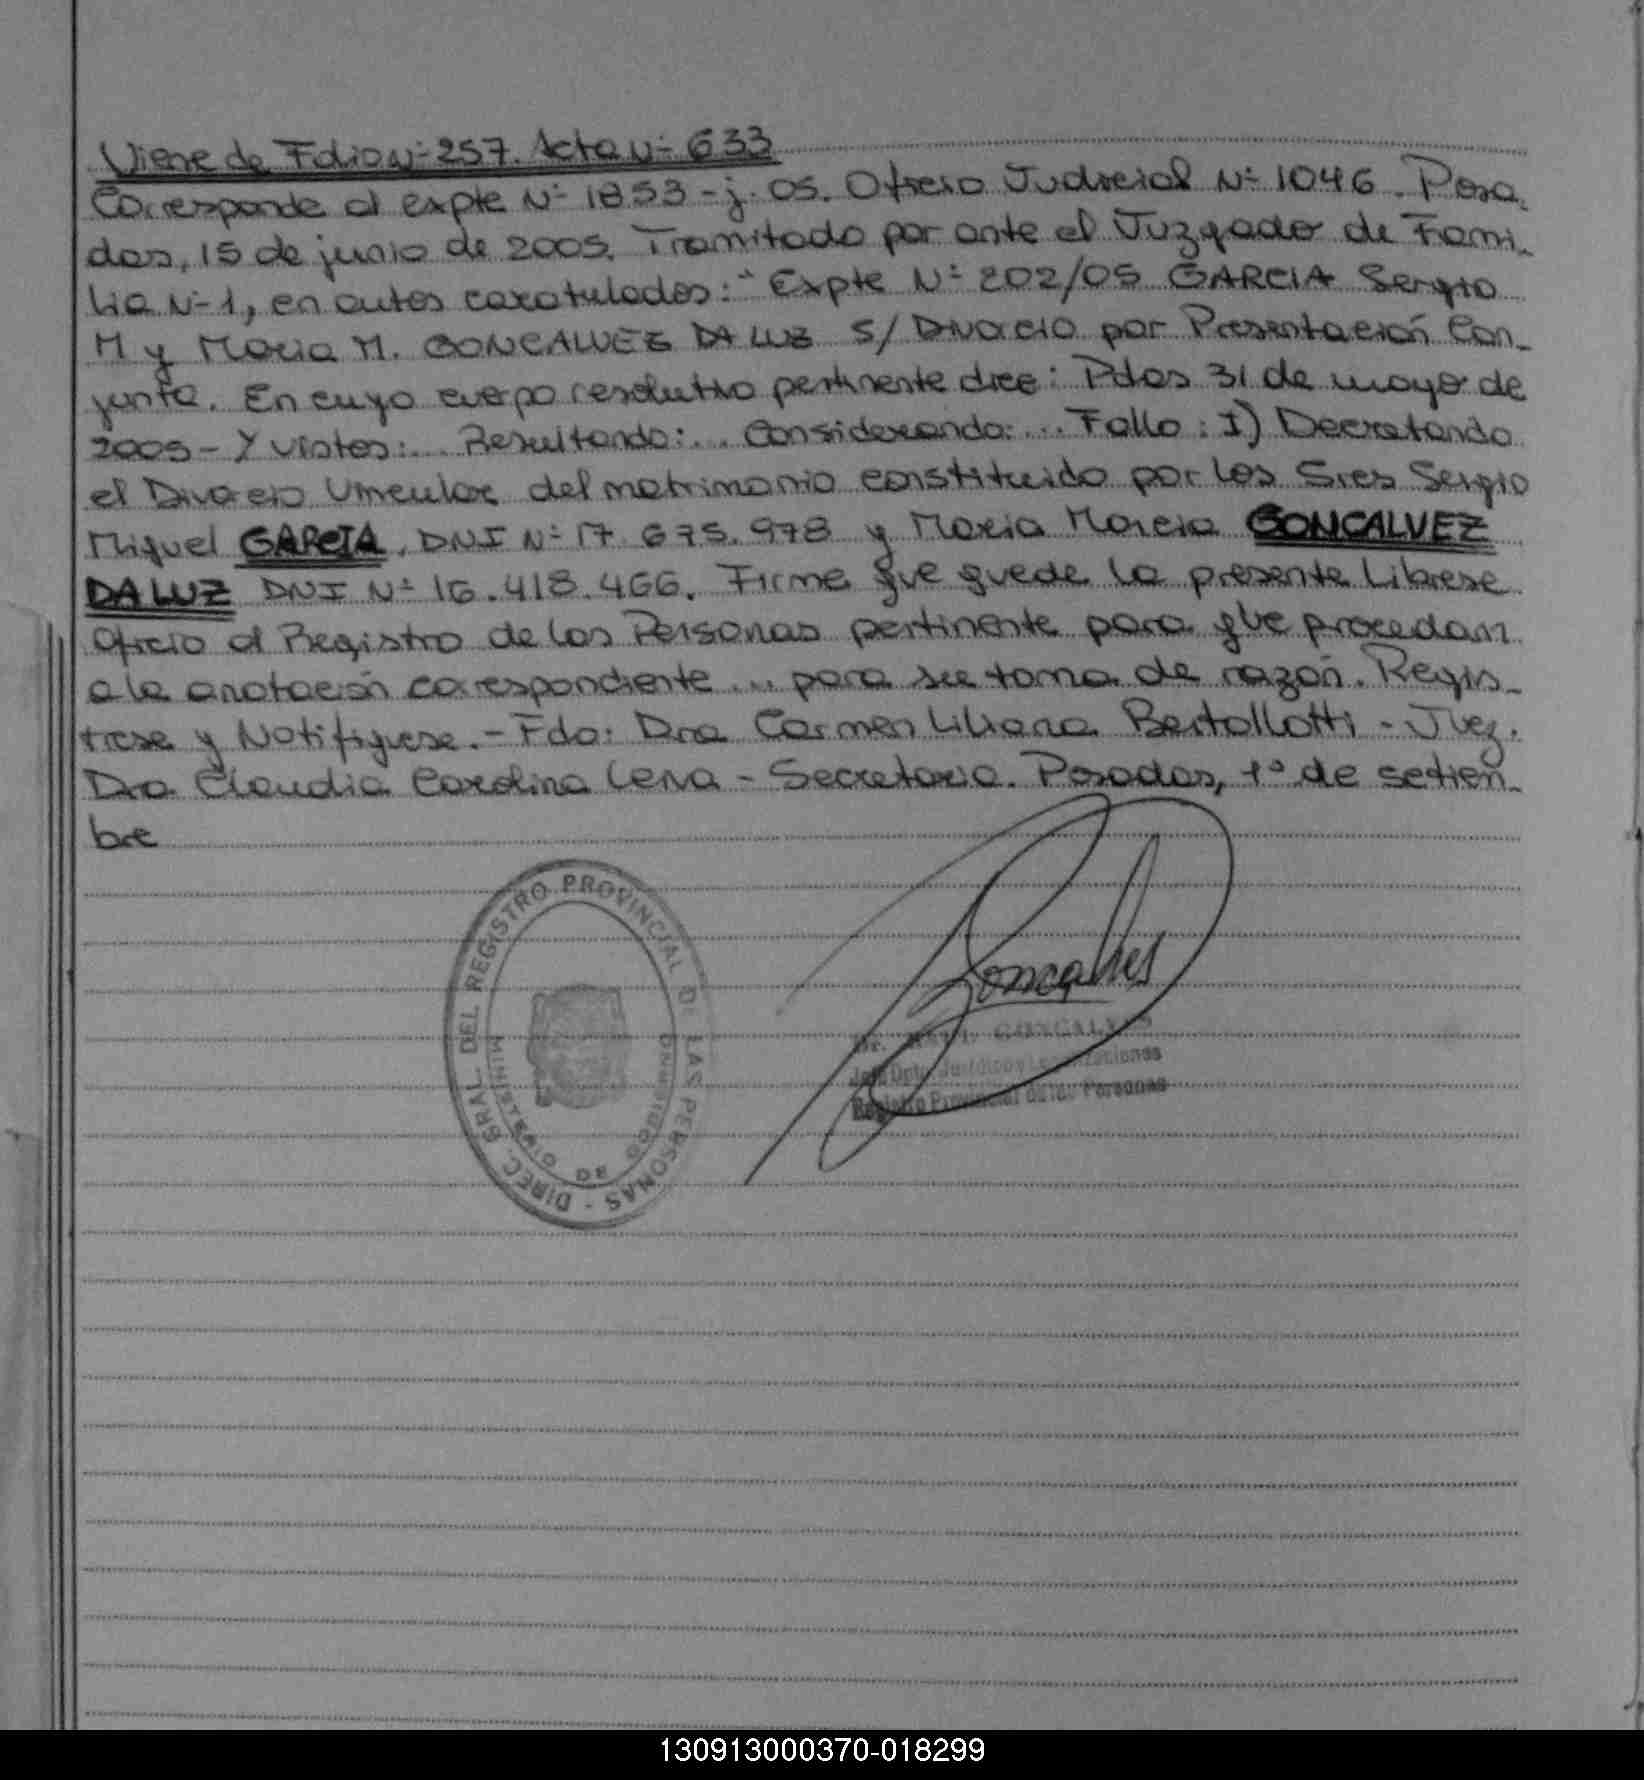 Viene de Folio Nº 257. Acta Nº 633
Corresponde al expte Nº 1853-j-05. Oficio Judicial Nº 1046. Posa-
das, 15 de junio de 2005. Tramitado por ante el Juzgado de Fami-
lia Nº 1, en autos caratulados: "Expte Nº 202/05 GARCIA Sergio
M y Maria M. GONCALVEZ DA LUZ S/ Divorcio por Presentación Con-
junta. En cuyo cuerpo resolutivo pertinente dice: Pdas 31 de mayo de
2005 - Y vistos:... Resultando:... Considerando:... Fallo: I) Decretando
el Divorcio Vincular del matrimonio constituido por los Sres Sergio
Miguel GARCIA, DNI Nº 17.675.978 y Maria Marcia GONCALVEZ
DA LUZ DNI Nº 16.418.466. Firme que quede la presente Librese
Oficio al Registro de las Personas pertinente para que procedan
a la anotación correspondiente ... para su toma de razón. Regis-
trese y Notifiquese.- Fdo: Dra Carmen Liliana Bertollotti - Juez.
Dra Claudia Carolina Lena - Secretaria. Posadas, 1º de setiem-
bre
DIREC. GRAL DEL REGISTRO PROVINCIAL DE LAS PERSONAS -
MINISTERIO DE GOBIERNO
Goncalves
Dr. GONCALVES
Jefe Dpto. Jurídico y Legalizaciones
Registro Provincial de las Personas
130913000370-018299